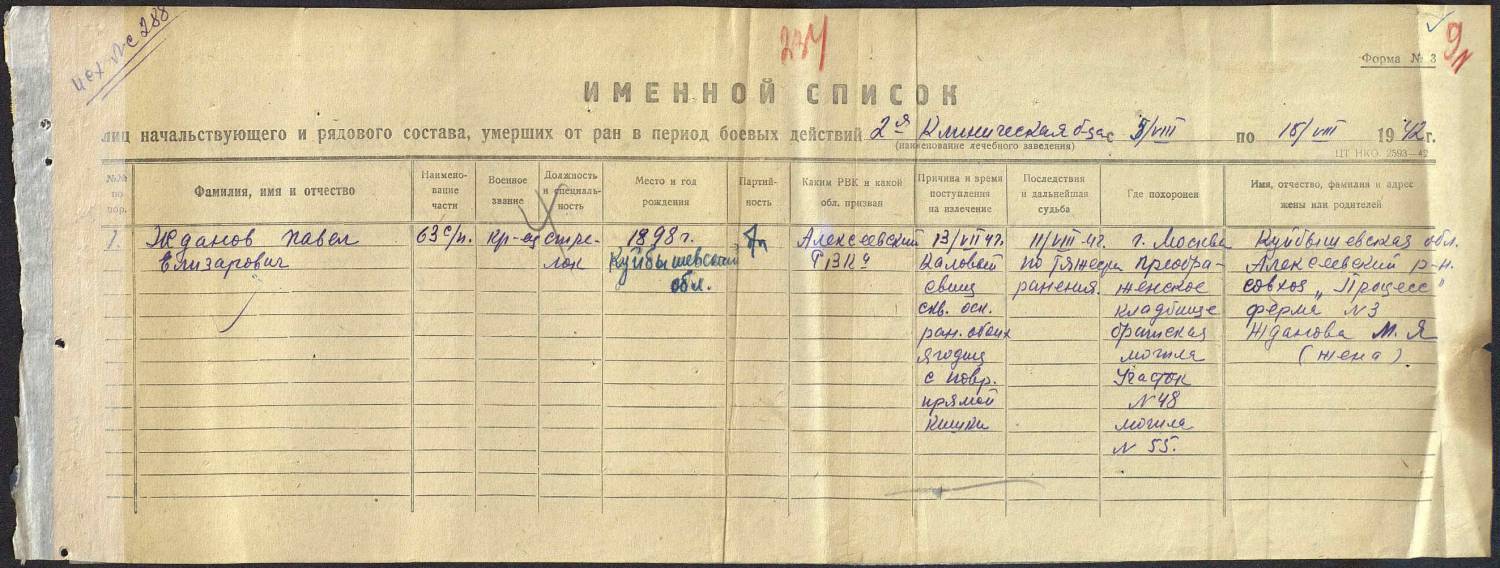 исх №с 288
234
9
Форма № 3
ИМЕННОЙ СПИСОК
лиц начальствующего и рядового состава, умерших от ран в период боевых действий 2ая Клиническая б-ца с 5/VIII по 15/VIII 1942 г.
(наименование лечебного заведения)
ЦТ НКО. 2593—42
№№ по пор.
Фамилия, имя и отчество
Наимено-
вание
части
Военное
звание
Должность
и специаль-
ность
Место и год
рождения
Партий-
ность
Каким РВК и какой
обл. призван
Причина и время
поступления
на излечение
Последствия
и дальнейшая
судьба
Где похоронен
Имя, отчество, фамилия и адрес
жены или родителей
1.
Жданов Павел
Елизарович
63 с/п.
кр-ец
стре-
лок
1898 г.
Куйбышевской
обл.
Алексеевский
РВК
13/VII 42.
Каловый
свищ
скв. оск.
ран. обеих
ягодиц
с повр.
прямой
кишки
11/VIII-42.
по тяжести
ранения.
г. Москва
преобра-
женское
кладбище
братская
могила
Участок
N 48
могила
N 55.
Куйбышевская обл.
Алексеевский р-н.
совхоз „Процесс"
ферма N3
Жданова М. Я
(жена)